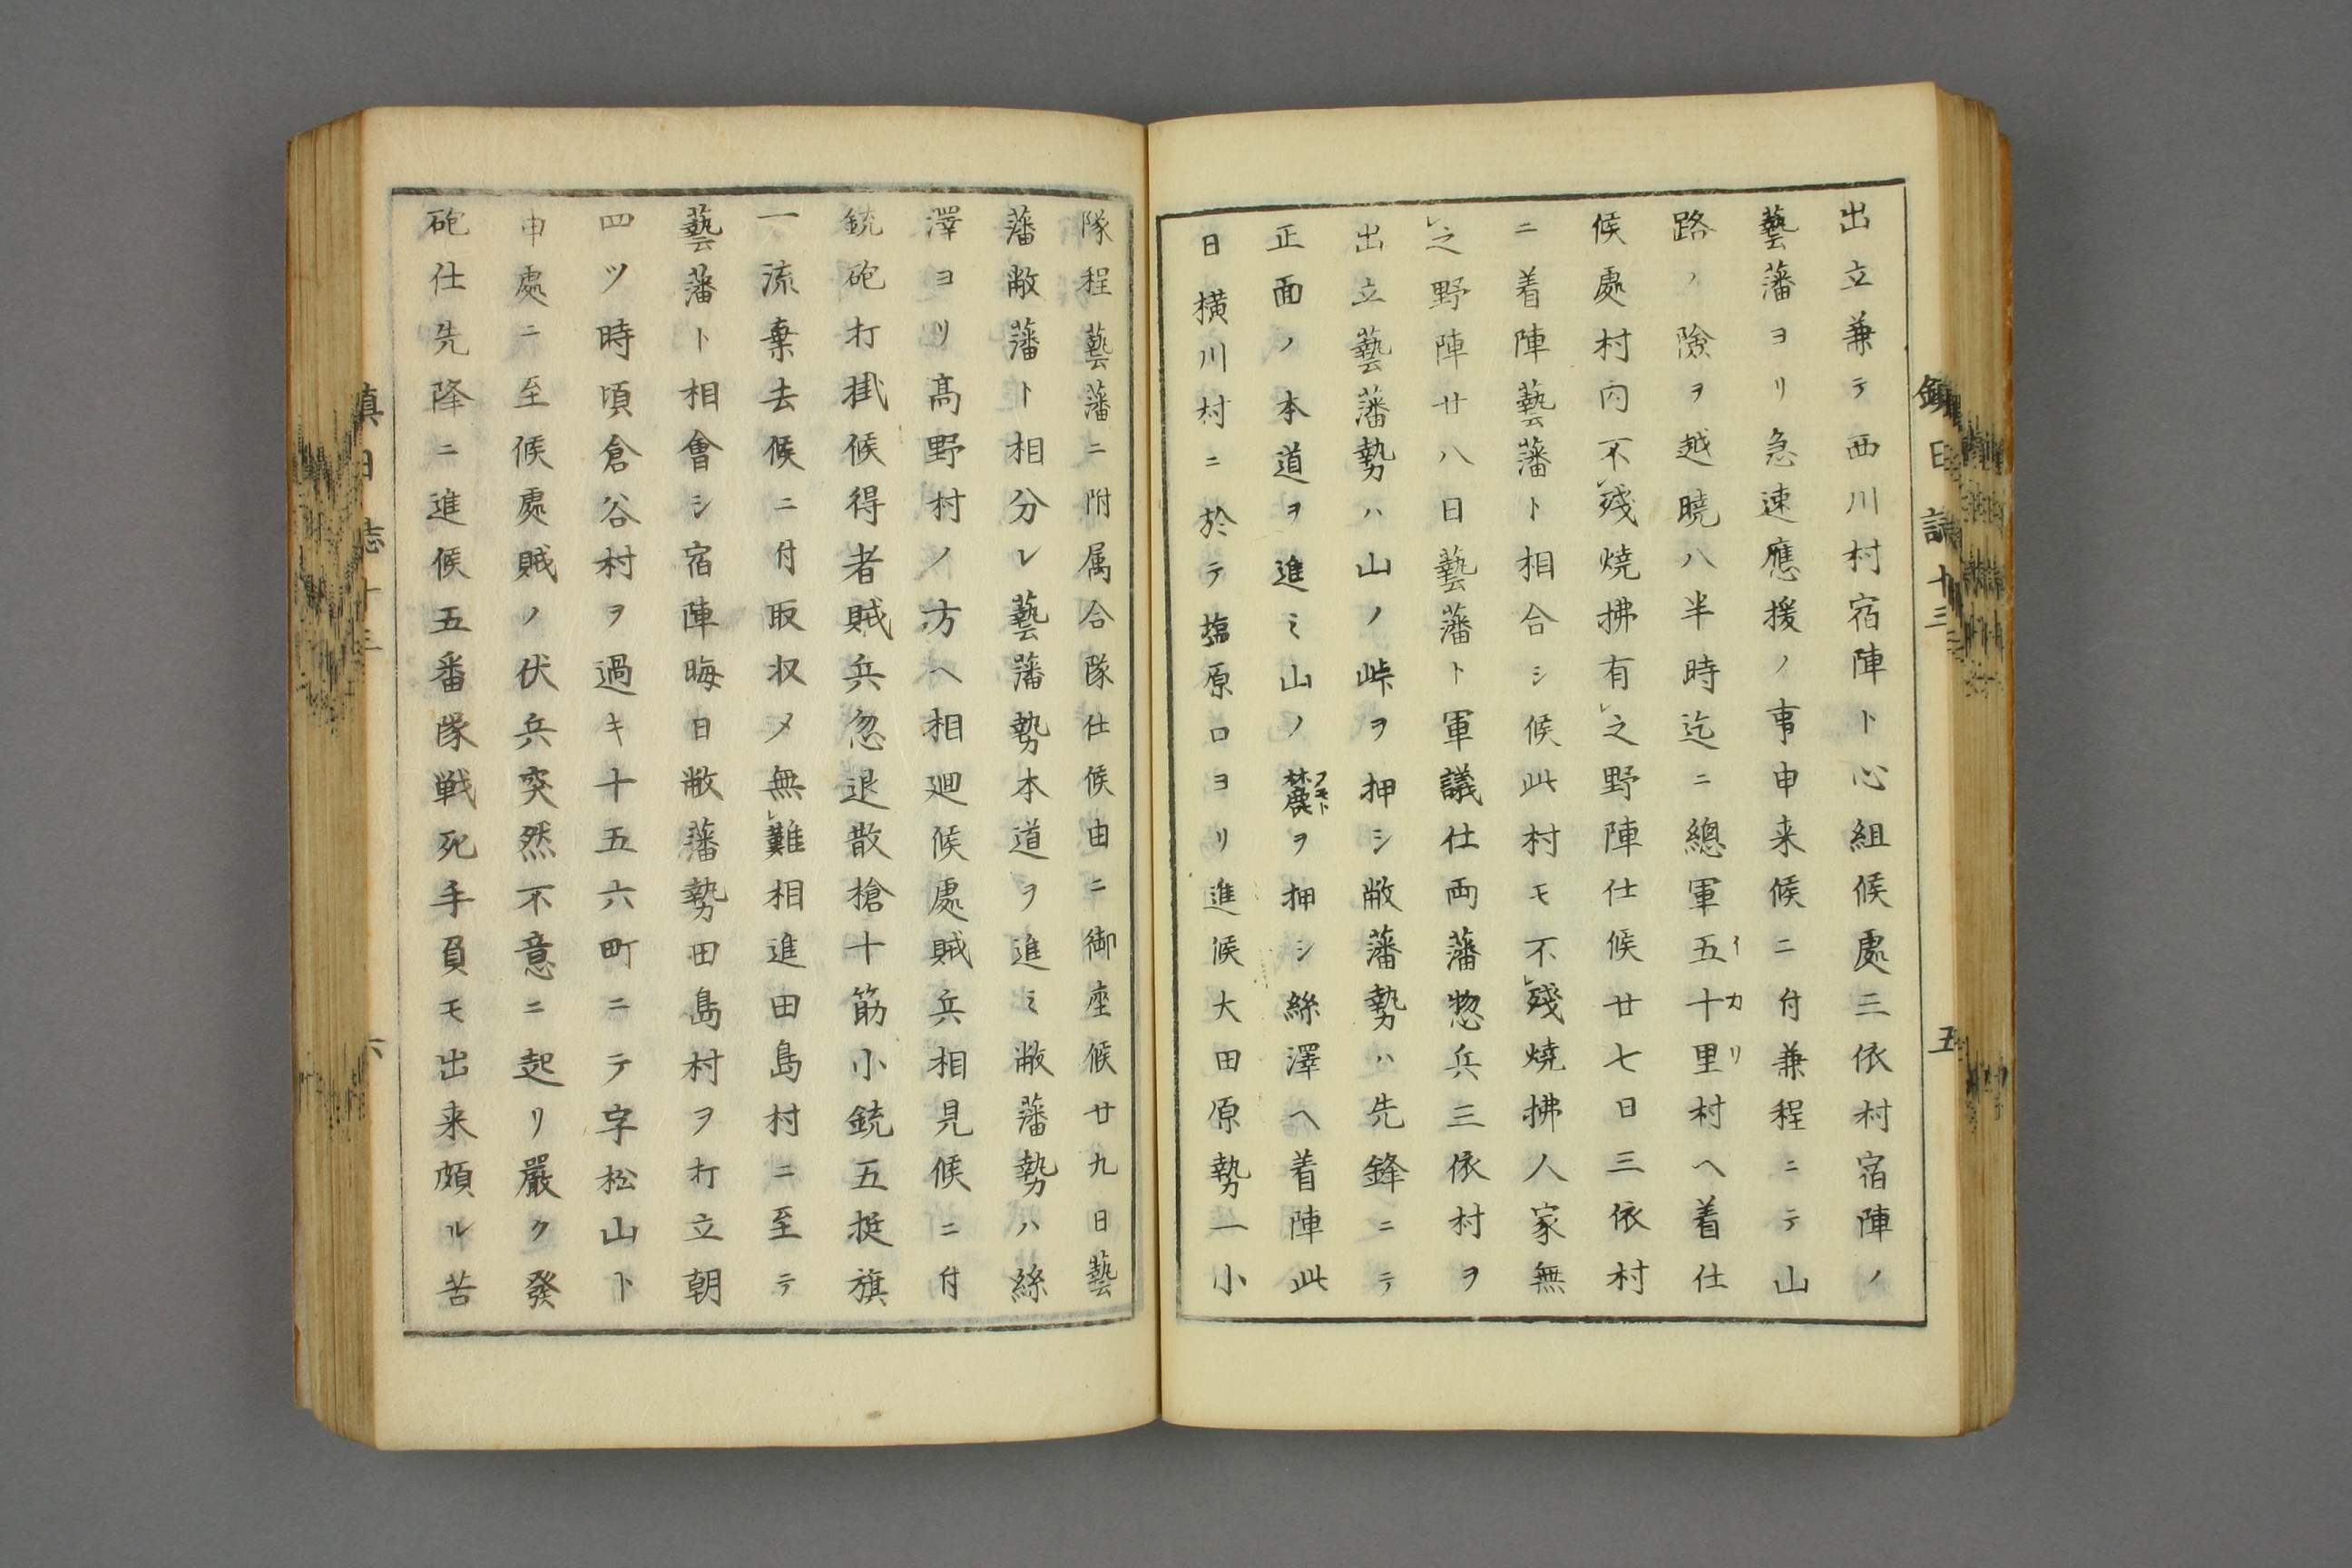 出立兼テ西川村宿陣ト心組候處三依村宿陣ノ
藝藩ヨリ急速應援ノ事申来候ニ付兼程ニテ山
路ノ險ヲ越曉八半時迄ニ總軍五十里村ヘ着仕
イカリ
候處村内不レ残燒拂有レ之野陣仕候廿七日三依村
ニ着陣藝藩ト相合シ候此村モ不レ殘燒拂人家無
レ之野陣廿八日藝藩ト軍議仕両藩惣兵三依村ヲ
出立藝藩勢ハ山ノ峠ヲ押シ敝藩勢ハ先鋒ニテ
正面ノ本道ヲ進ミ山ノ麓ヲ押シ絲澤ヘ着陣此
フモト
日横川村ニ於テ塩原口ヨリ進候大田原勢一小
鎮日誌十三
五
隊程藝藩ニ附属合隊仕候由ニ御座候廿九日藝
藩敝藩ト相分レ藝藩勢本道ヲ進ミ敝藩勢ハ絲
澤ヨリ髙野村ノ方ヘ相廻候處賊兵相見候ニ付
銃砲打掛候得者賊兵忽退散槍十筋小銃五挺旗
一流棄去候ニ付取収メ無レ難相進田島村ニ至テ
藝藩ト相會シ宿陣晦日敝藩勢田島村ヲ打立朝
四ツ時頃倉谷村ヲ過キ十五六町ニテ字松山ト
申處ニ至候處賊ノ伏兵突然不意ニ起リ嚴ク發
砲仕先降ニ進候五番隊戦死手負モ出来頗ル苦
鎮日誌十三
六